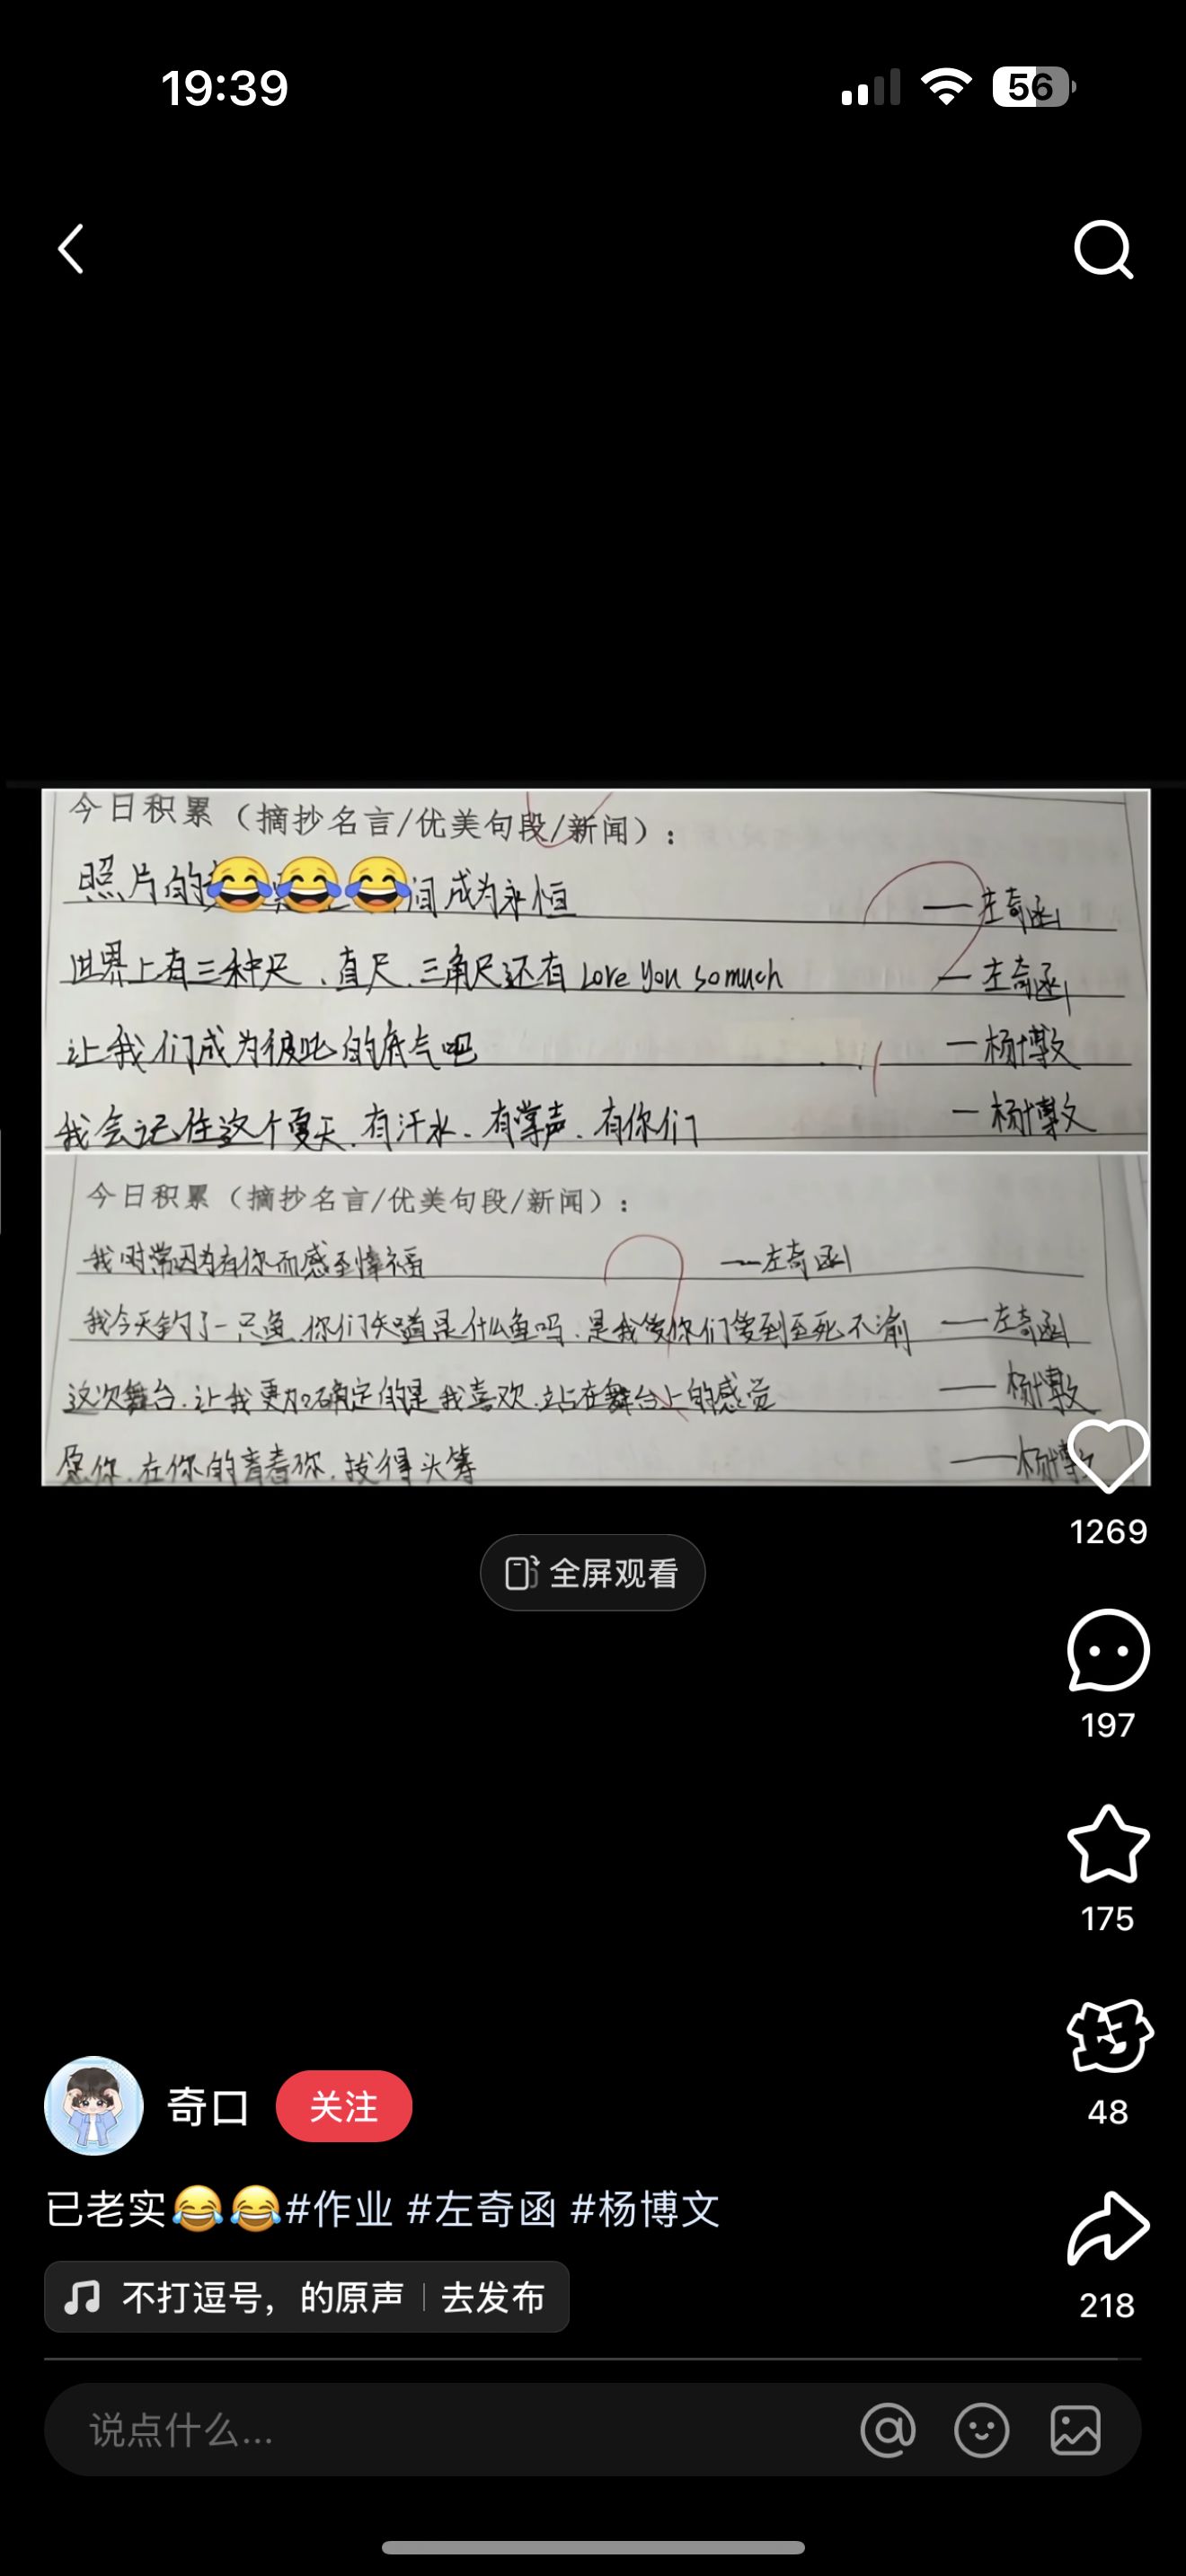 19:39
56
今日积累（摘抄名言/优美句段/新闻）：
照片的 间成为永恒 —左奇函
世界上有三种尺、直尺.三角尺还有Love You so much —左奇函
让我们成为彼此的底气吧 —杨博文
我会记住这个夏天.有汗水.有掌声.有你们 —杨博文
今日积累（摘抄名言/优美句段/新闻）：
我时常因为有你而感到幸福 —左奇函
我今天钓了一只鱼.你们知道是什么鱼吗.是我爱你们爱到至死不渝 —左奇函
这次舞台.让我更加确定的是我喜欢.站在舞台上的感觉 —杨博文
愿你.在你的青春你.拔得头筹 —杨博文
全屏观看
1269
197
175
48
218
奇口 关注
已老实😂😂#作业 #左奇函 #杨博文
不打逗号，的原声 | 去发布
说点什么...